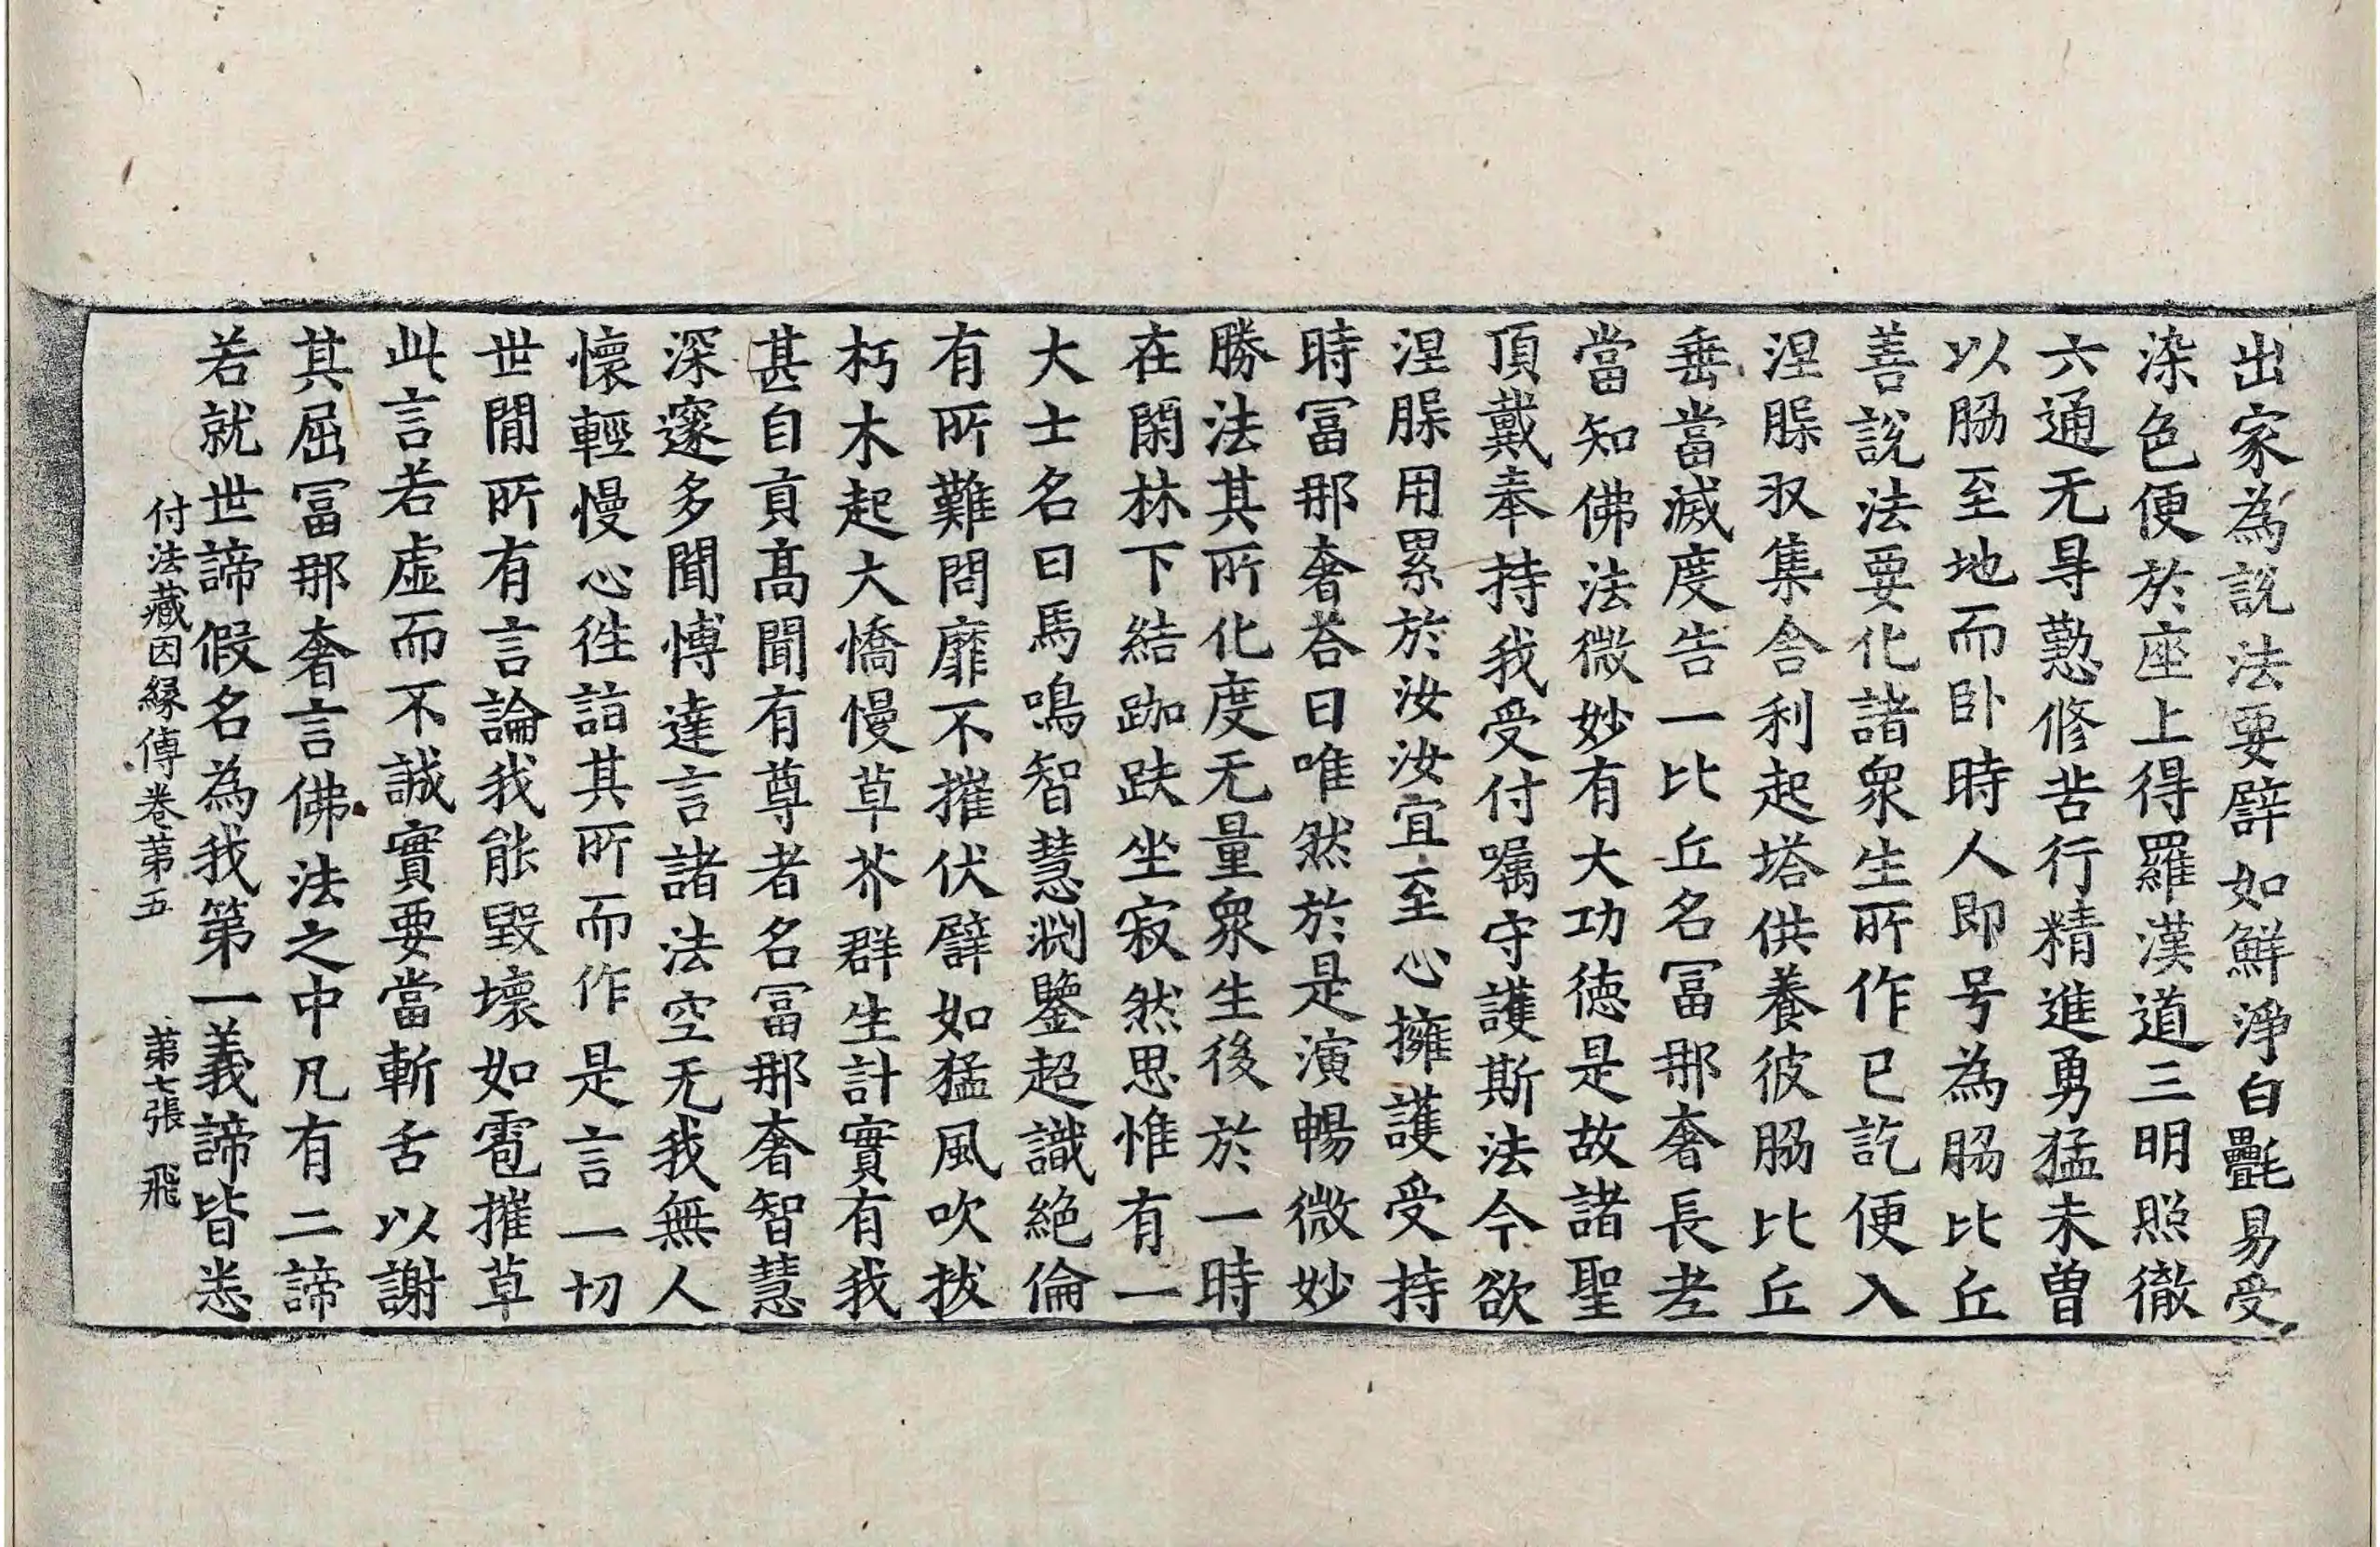 出家為說法要譬如鮮淨白㲲易受
染色便於座上得羅漢道三明照徹
六通无㝵懃修苦行精進勇猛未曽
以脇至地而卧時人即号為脇比丘
善說法要化諸衆生所作已訖便入
涅槃収集舎利起塔供養彼脇比丘
垂當滅度告一比丘名冨那奢長老
當知佛法微妙有大功徳是故諸聖
頂戴奉持我受付嘱守護斯法今欲
涅槃用累於汝汝宜至心擁護受持
時冨那奢荅曰唯然於是演暢微妙
勝法其所化度无量衆生後於一時
在閑林下結跏趺坐寂然思惟有一
大士名曰馬鳴智慧渊鑒超識絶倫
有所難問靡不摧伏譬如猛風吹拔
朽木起大憍慢草芥群生計實有我
甚自貢髙聞有尊者名冨那奢智慧
深邃多聞愽達言諸法空无我無人
懷輕慢心徃詣其所而作是言一切
世間所有言論我能毀壞如雹摧草
此言若虛而不誠實要當斬舌以謝
其屈冨那奢言佛法之中凡有二諦
若就世諦假名為我第一義諦皆悉
付法藏因縁傳卷苐五　苐七張　飛